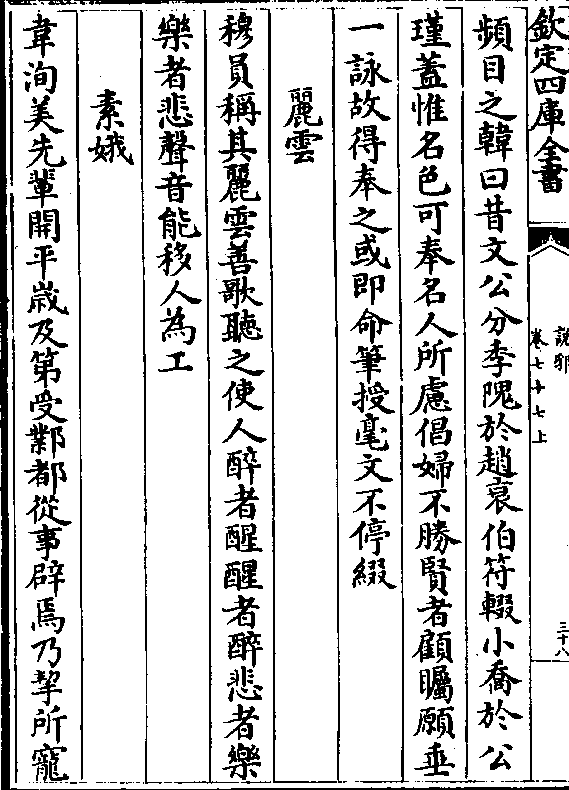 欽定四庫全書
說郛
卷七十七上
三十八
頻目之韓曰昔文公分季隗於趙衰伯符輟小喬於公
瑾蓋惟名色可奉名人所慮倡婦不勝賢者顧矚願垂
一詠故得奉之或即命筆授毫文不停綴
麗雲
穆員稱其麗雲善歌聽之使人醉者醒醒者醉悲者樂
樂者悲聲音能移人為工
素娥
韋洵美先輩開平歲及第受鄴都從事辟焉乃挈所寵